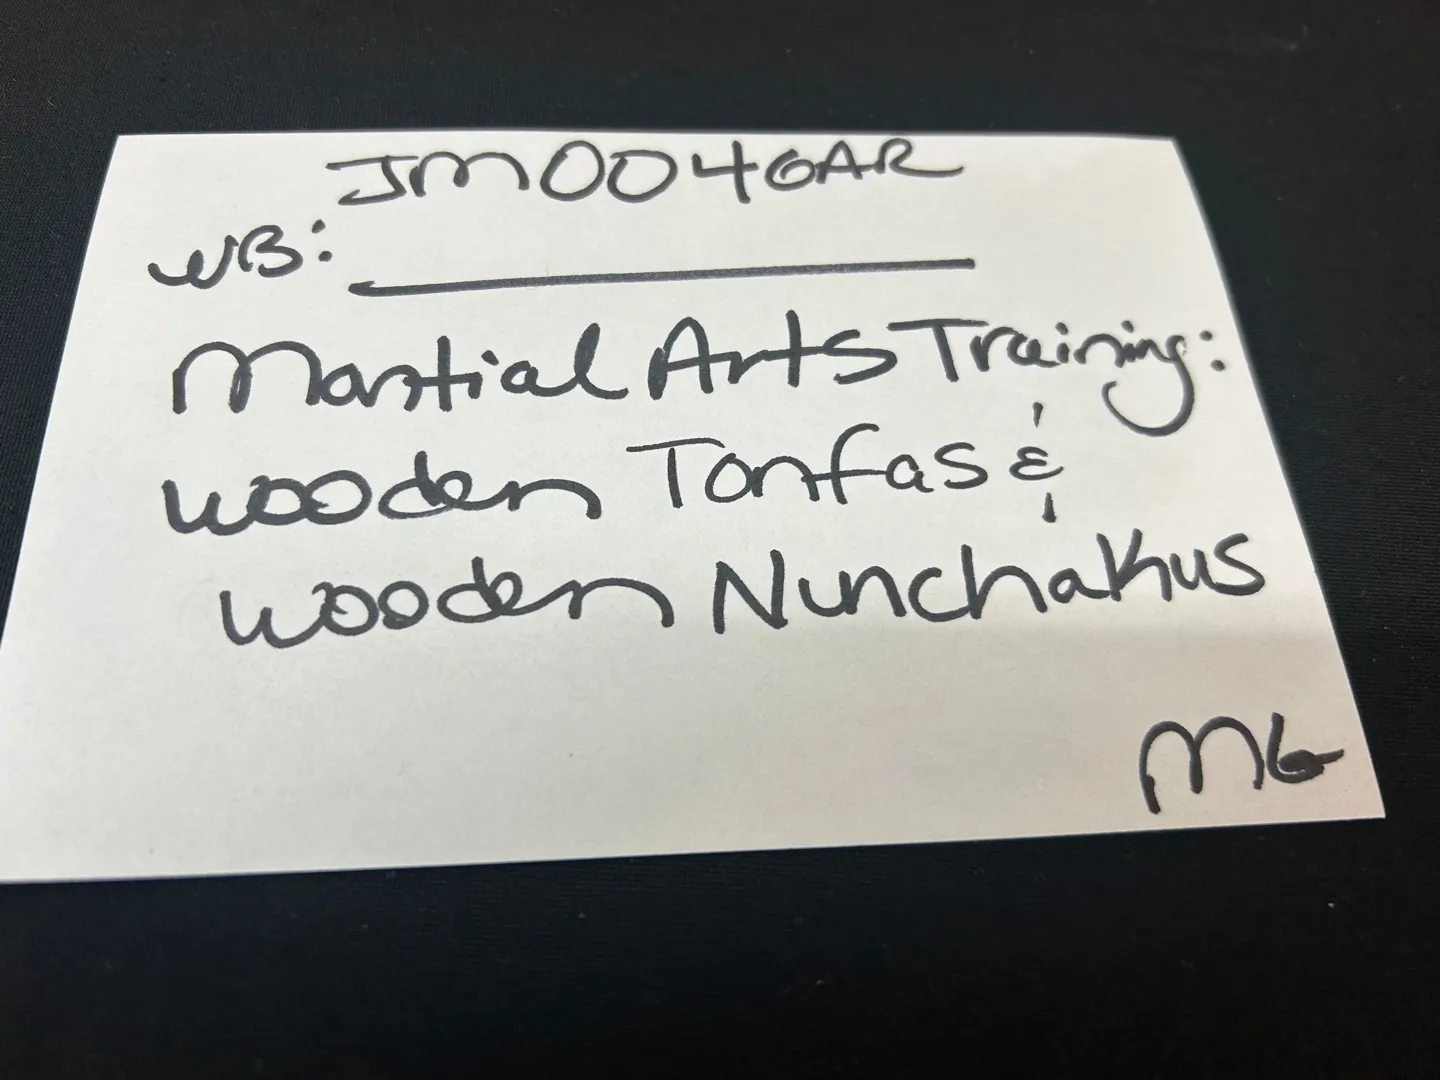 JM0046AR
WB:
Martial Arts Training:
wooden Tonfas &
wooden Nunchakus
MG